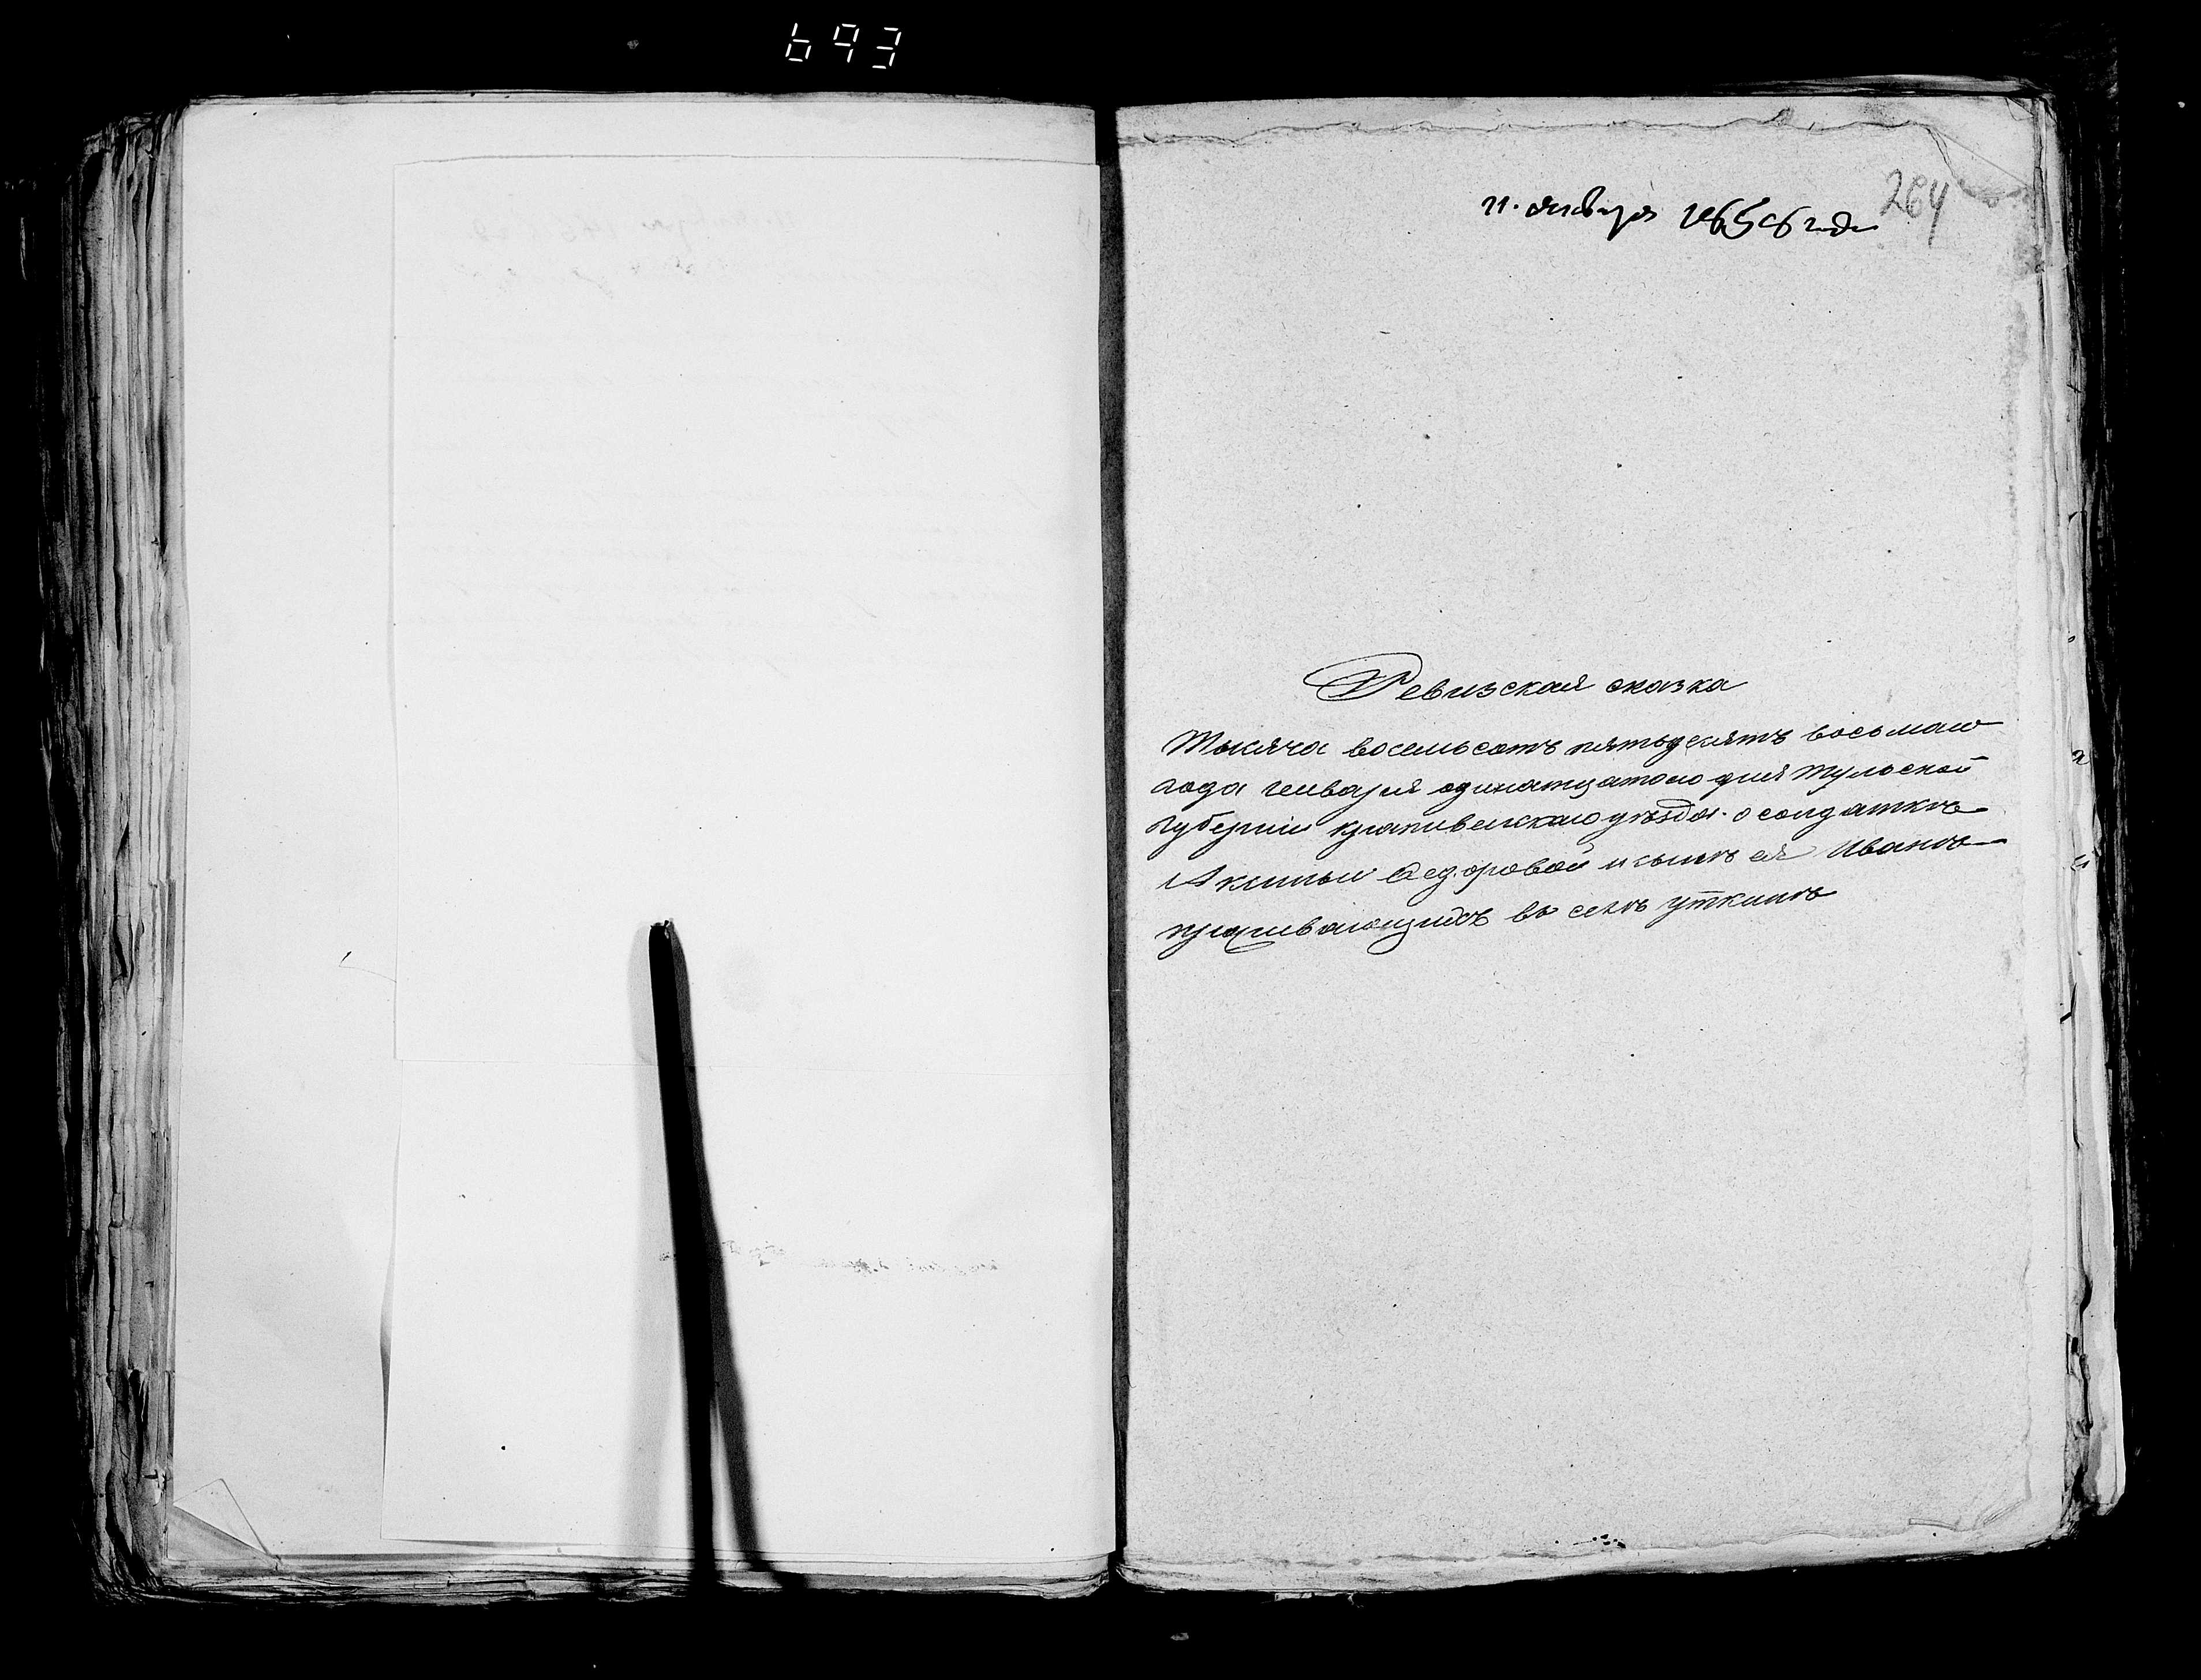 693
264
11. января 1858 года
Ревизская сказка
Тысяча восемьсотъ пятьдесятъ восьмаго
года генваря одинатцатого дня Тульской
Губернии крапивенскаго уѣзда. о солдаткѣ
Акилины Ѳедоровой и сынѣ ея Иванѣ
проживающихъ въ селѣ уткинѣ